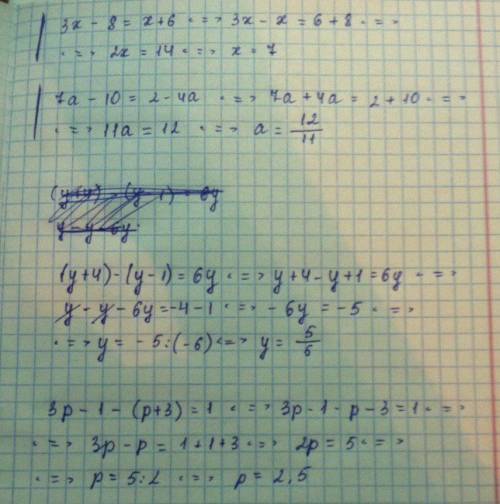 3x - 8 = x + 6 <=> 3x - x = 6 + 8 <=>
<=> 2x = 14 <=> x = 7
7a - 10 = 2 - 4a <=> 7a + 4a = 2 + 10 <=>
<=> 11a = 12 <=> a = 12/11
(y+4) - (y-1) = 6y <=> y + 4 - y + 1 = 6y <=>
y - y - 6y = -4 - 1 <=> -6y = -5 <=>
<=> y = -5 : (-6) <=> y = 5/6
3p - 1 - (p+3) = 1 <=> 3p - 1 - p - 3 = 1 <=>
<=> 3p - p = 1 + 1 + 3 <=> 2p = 5 <=>
<=> p = 5 : 2 <=> p = 2,5